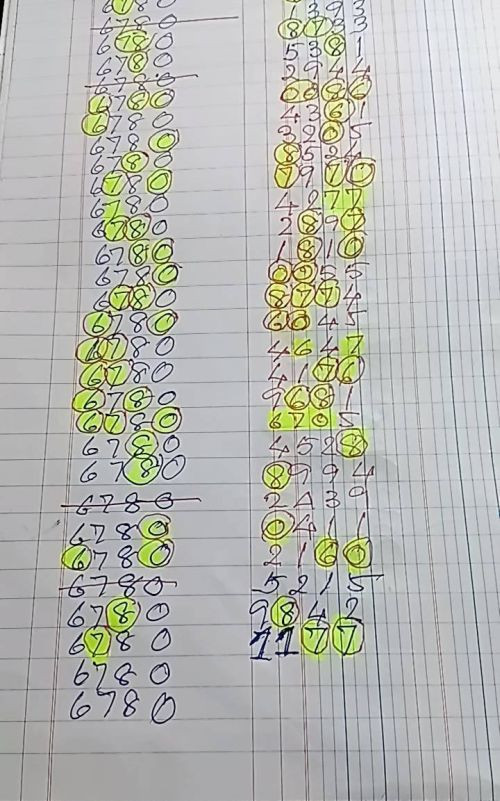 6780
6780
6780 8733
6780 5381
6780 2944
6780 0086
6780 4361
6780 3205
6780 8524
6780 7970
6780 4277
6780 2897
6780 1810
6780 0755
6780 8774
6780 6045
6780 4647
6780 4176
6780 9681
6780 6795
6780 4528
6780 8994
6780 2439
6780 0411
6780 2160
6780 5215
6780 9842
6780 1177
6780
6780